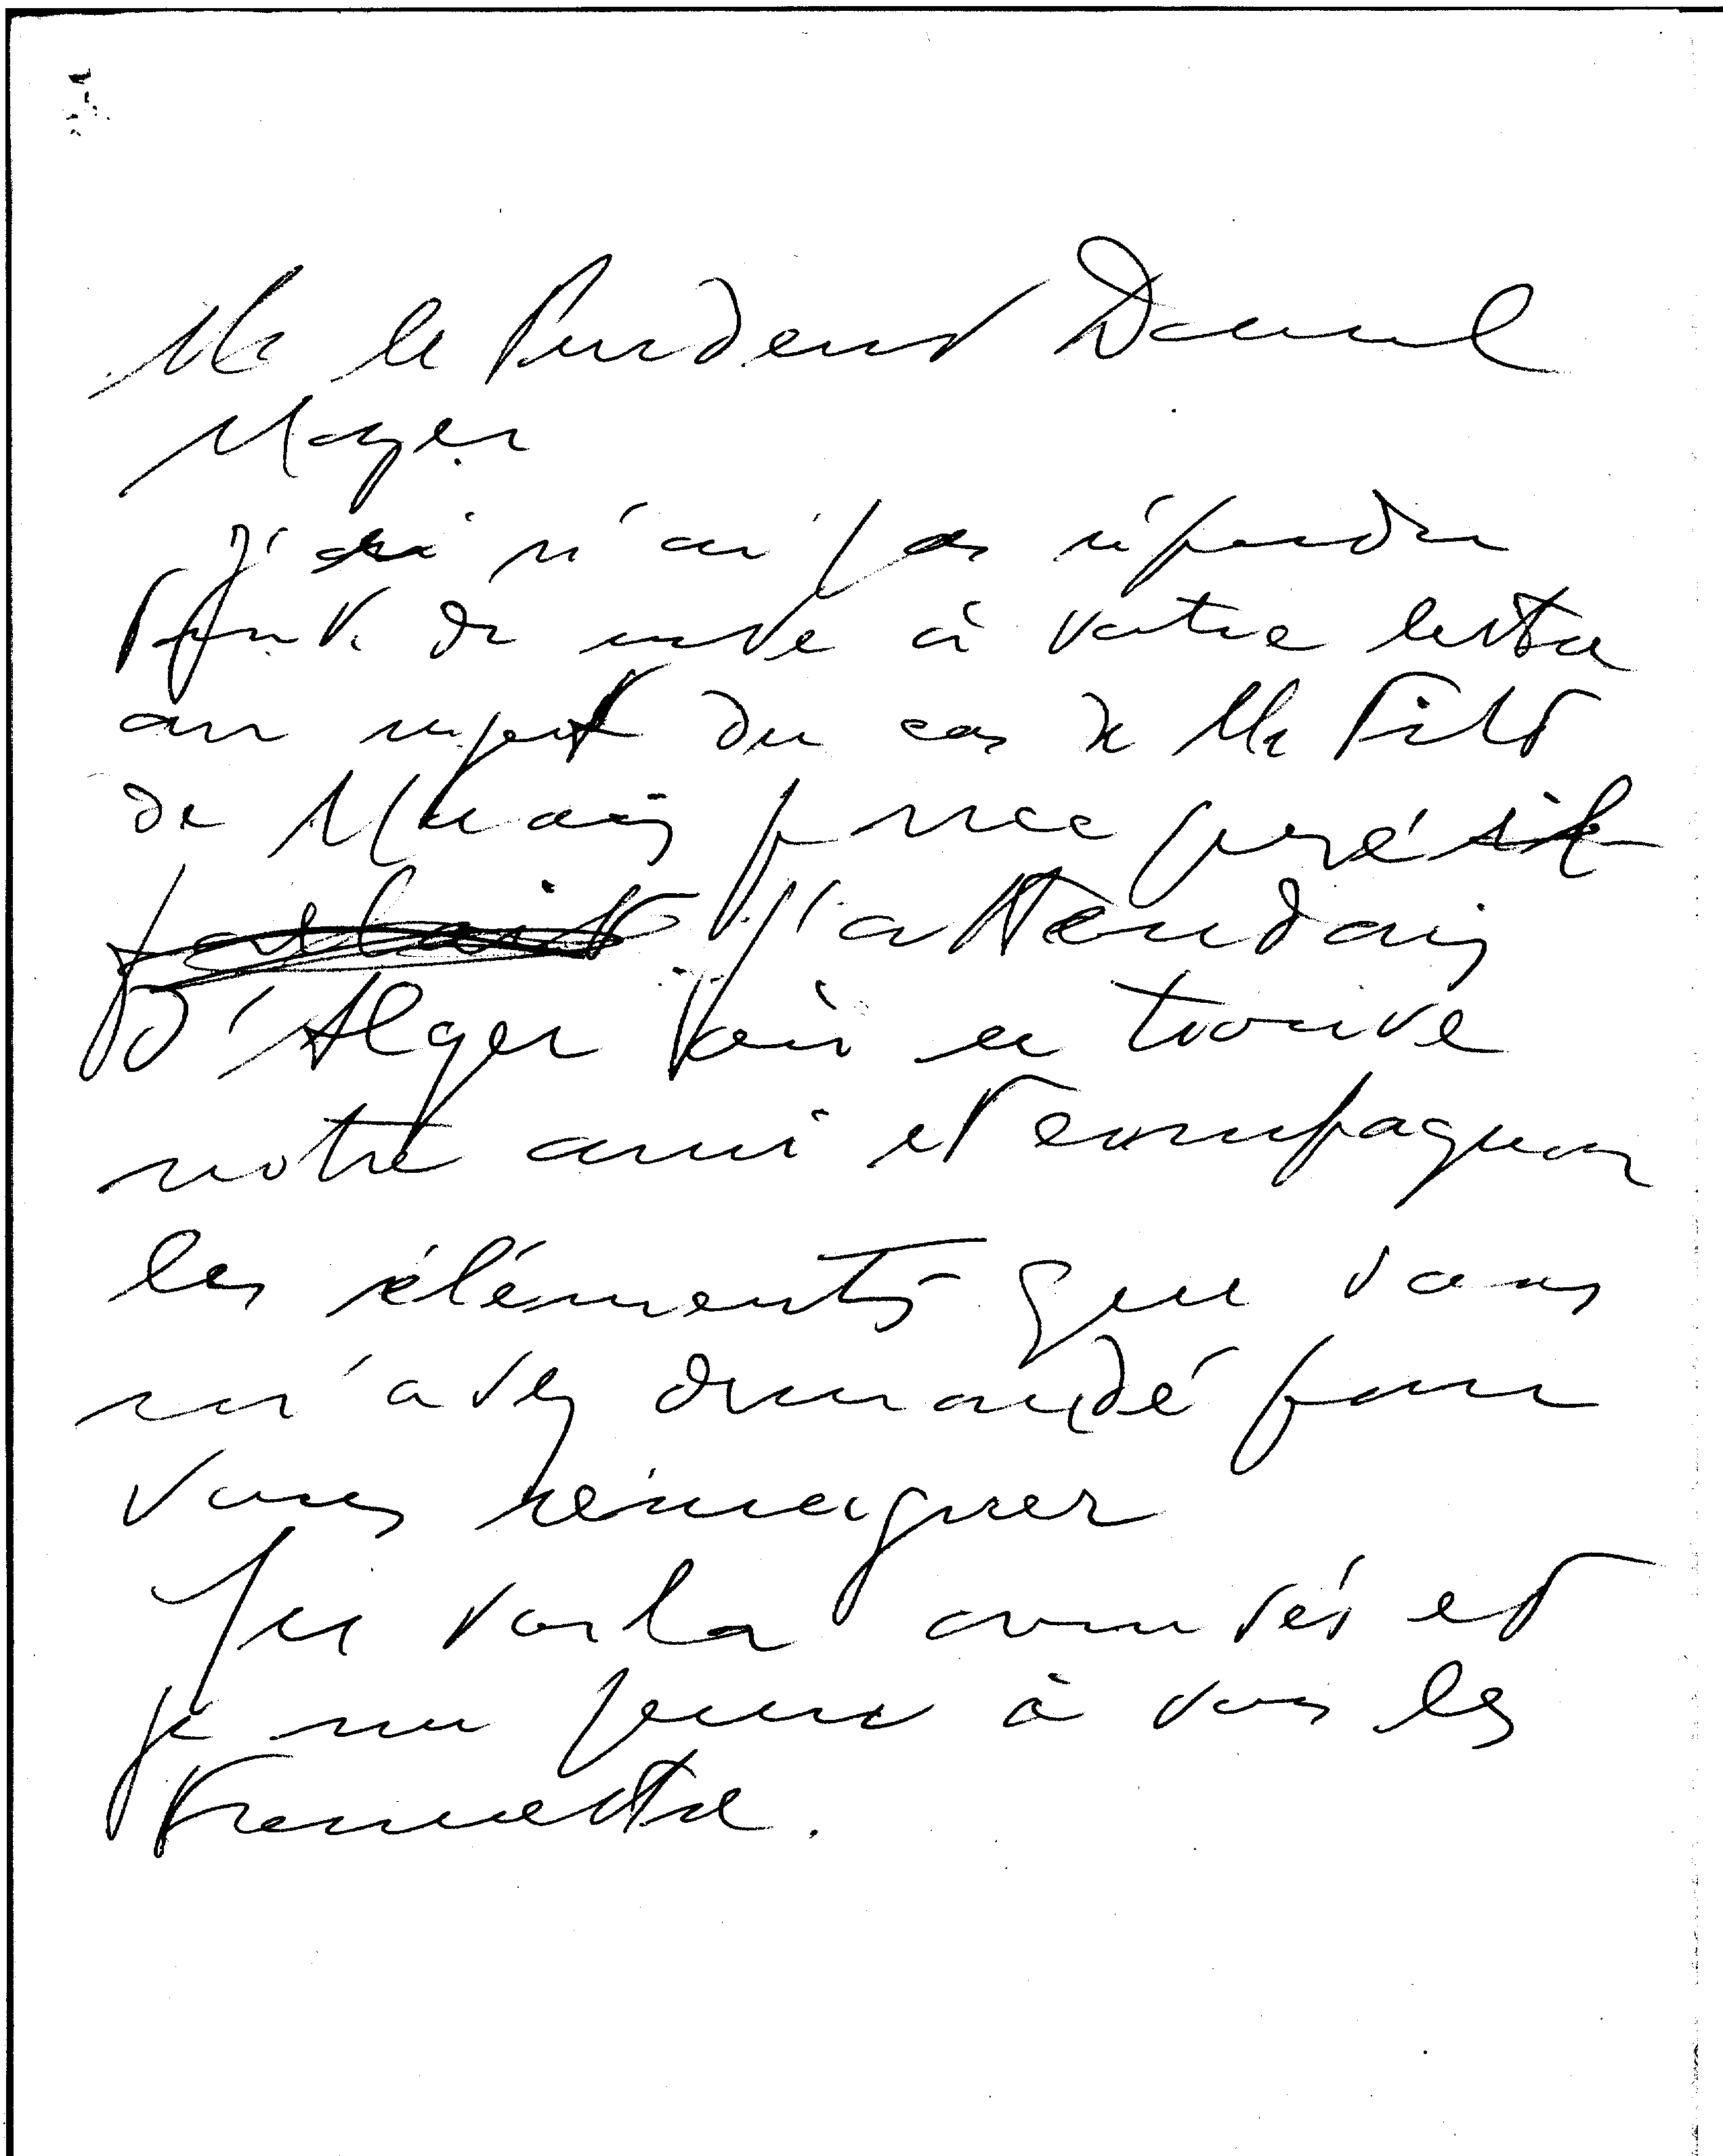 Mr le Président Daniel
Mayer
J' n'ai pas répondu
tout de suite à votre lettre
au sujet du cas de Mr
de parce que
parlait j'attendais
d'Alger où se trouve
notre ami et compagnon
les éléments que vous
m'avez demandé pour
vous renseigner
Les voilà arrivés et
je me permet à vous les
transmettre.